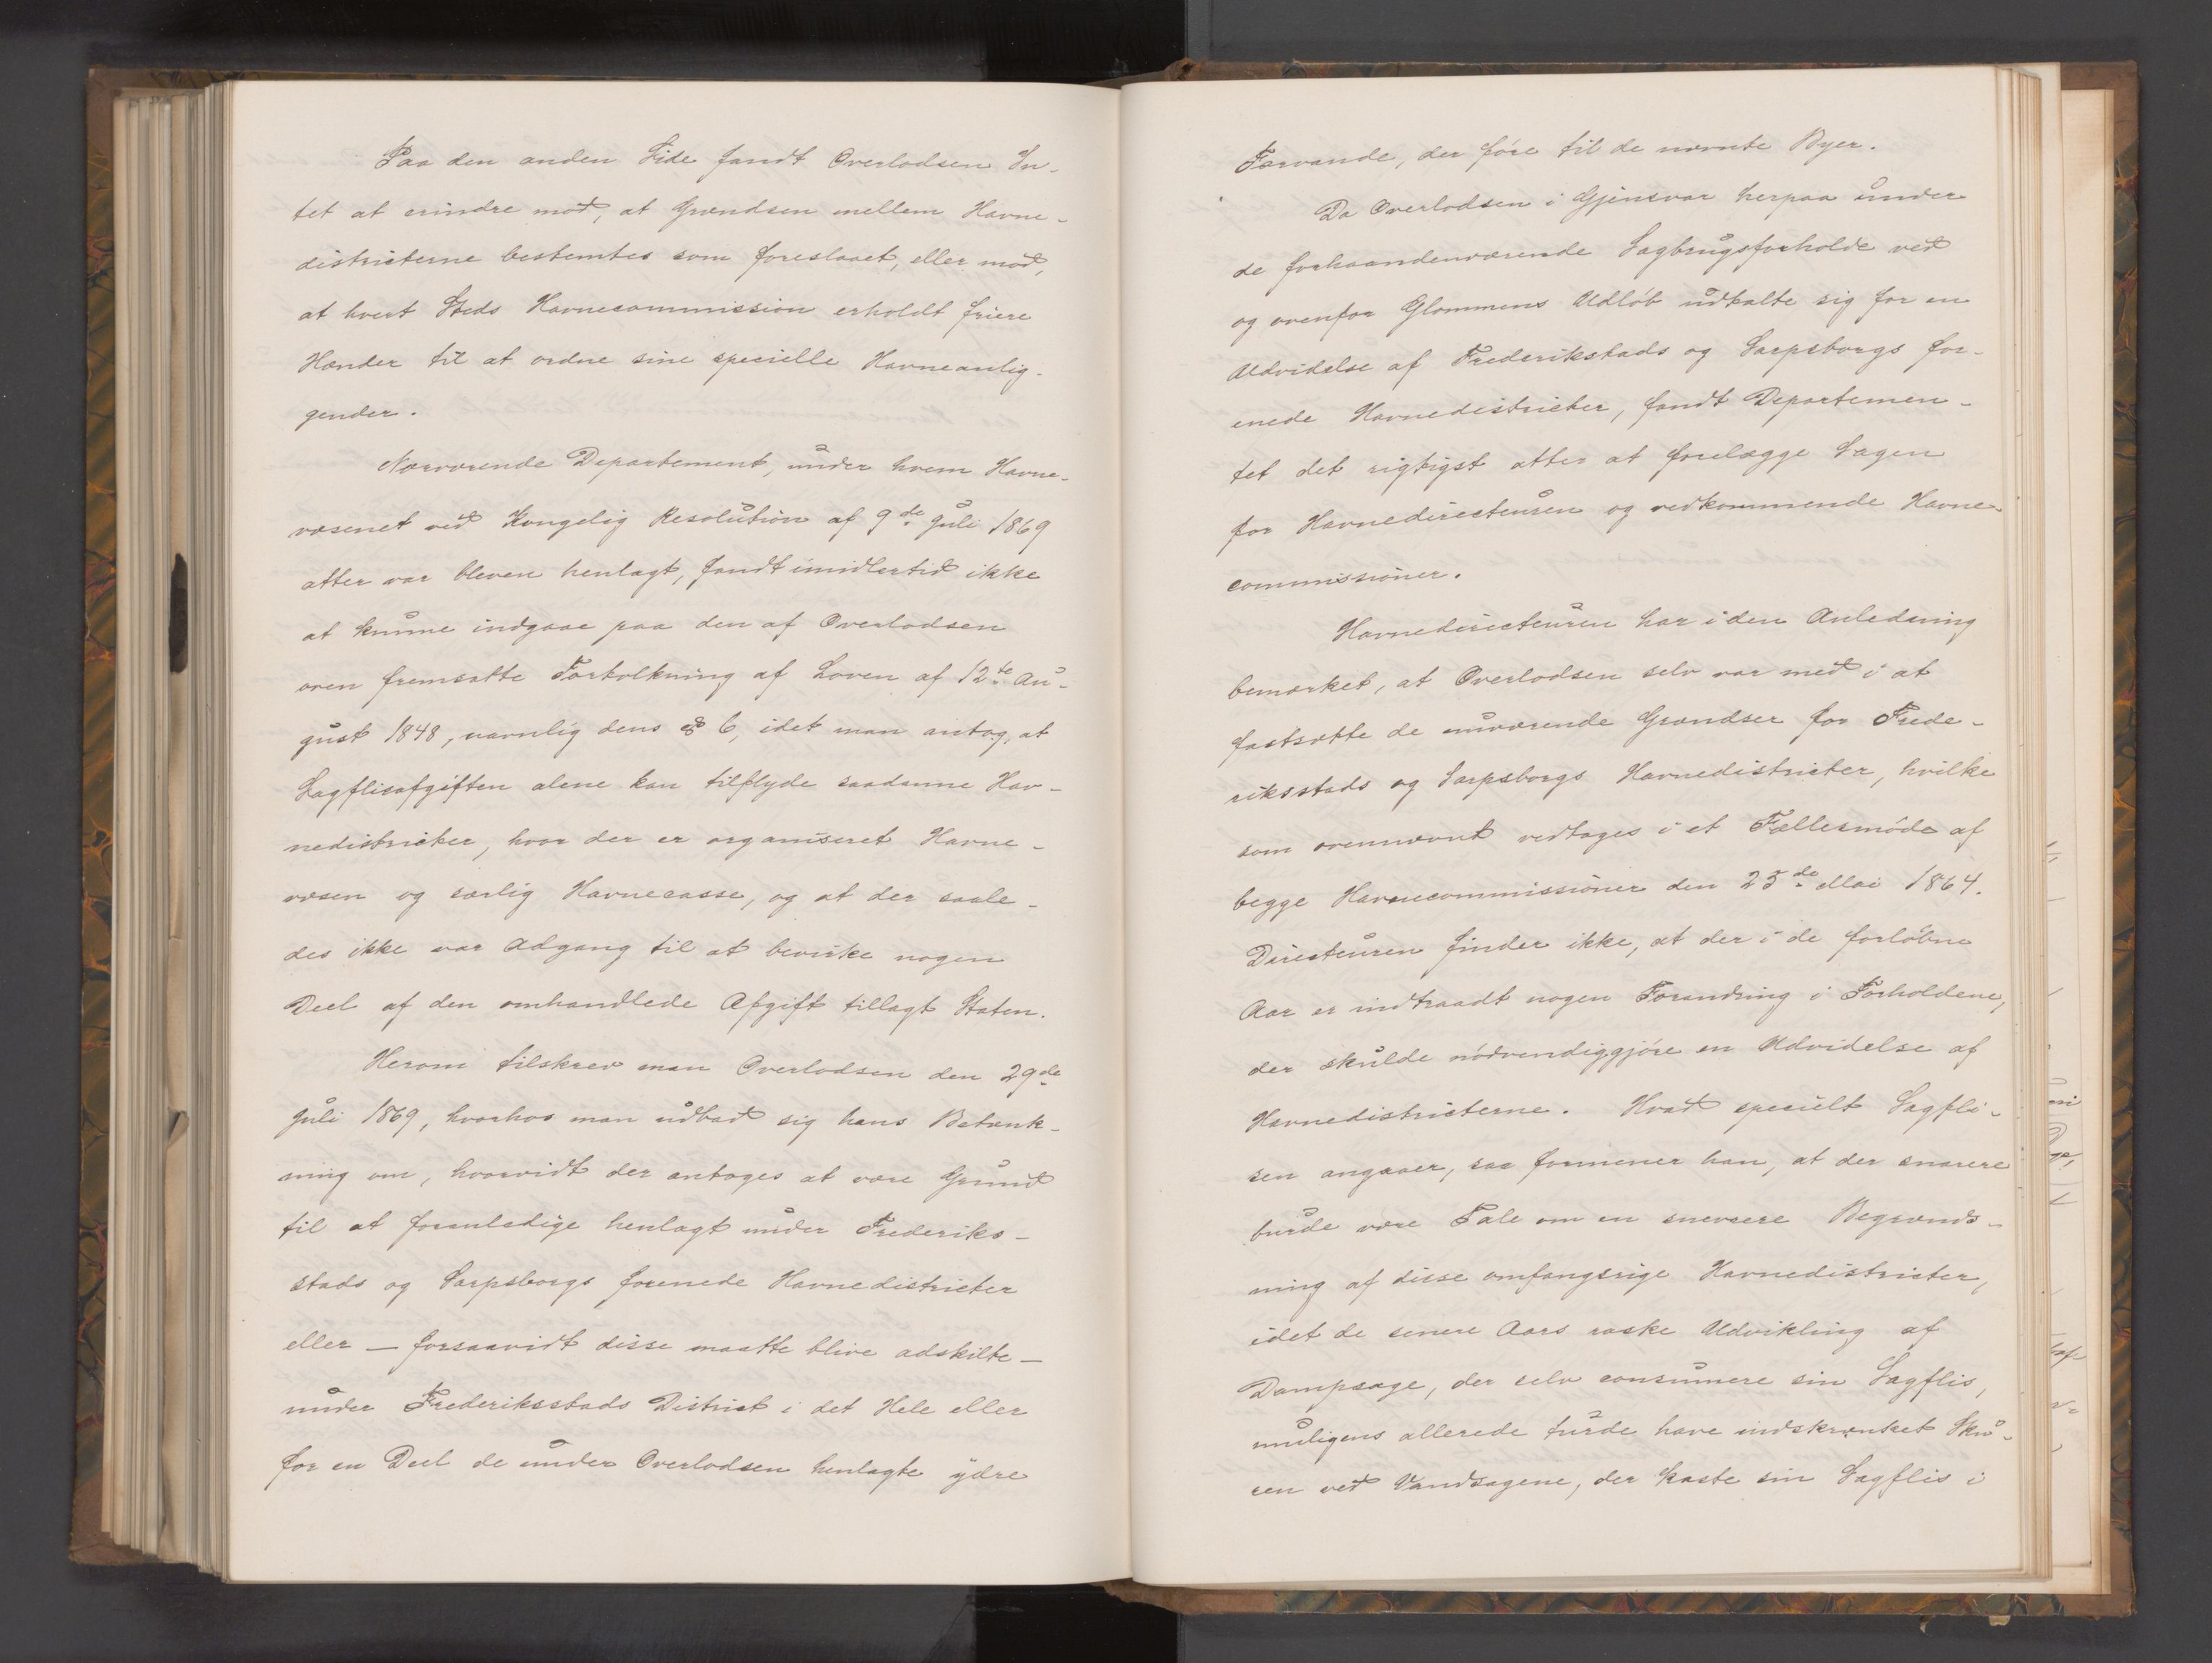 Paa den anden Side fandt Overlodsen In-
tet at erindre mod, at Grændsen mellem Havne-
districterne bestemtes som foreslaaet, eller mod,
at hvert Steds Havnecommission erholdt friere
Hænder til at ordne sine specielle Havneanlig-
gender.
Nærværende Departement, under hvem Havne-
væsenet ved Kongelig Resolution af 9de Juli 1869
atter var bleven henlagt, fandt imidlertid ikke
at kunne indgaae paa den af Overlodsen
oven fremsatte Fortolkning af Loven af 12te Au-
gust 1848, navnlig dens § 6, idet man antog, at
Sagflisafgiften alene kan tilflyde saadanne Hav-
nedistricter, hvor der er organiseret Havne-
væsen og særlig Havnecasse, og at der saale-
des ikke var Adgang til at bevirke nogen
Deel af den omhandlede Afgift tillagt Staten.
Herom tilskrev man Overlodsen den 29de
Juli 1869, hvorhos man udbad sig hans Betænk-
ning om, hvorvidt der antoges at være Grund
til at foranledige henlagt under Frederiks-
stads og Sarpsborgs forenede Havnedistricter
eller — forsaavidt disse maatte blive adskilte —
under Frederiksstads District i det Hele eller
for en Deel de under Overlodsen henlagte ydre
Farvande, der føre til de nævnte Byer.
Da Overlodsen i Gjensvar herpaa under
de forhaandenværende Sagbrugsforholde ved
og ovenfor Glommens Udløb udtalte sig for en
Udvidelse af Frederikstads og Sarpsborgs for-
enede Havnedistricter, fandt Departemen-
tet det rigtigst atter at forelægge Sagen
for Havnedirecteuren og vedkommende Havne-
commissioner.
Havnedirecteuren har i den Anledning
bemærket, at Overlodsen selv var med i at
fastsætte de nuværende Grændser for Frede-
riksstads og Sarpsborgs Havnedistricter, hvilke
som ovennævnt vedtoges i et Fællesmøde af
begge Havnecommissioner den 25de Mai 1864.
Directeuren finder ikke, at der i de forløbne
Aar er indtraadt nogen Forandring i Forholdene,
der skulde nødvendiggjøre en Udvidelse af
Havnedistricterne. Hvad specielt Sagfli-
sen angaaer, saa formener han, at der snarere
burde være Tale om en snevrere Begrænds-
ning af disse omfangsrige Havnedistricter,
idet de senere Aars raske Udvikling af
Dampsage, der selv consumere sin Sagflis,
muligens allerede turde have indskrænket Sku-
ren ved Vandsagene, der kaste sin Sagflis i